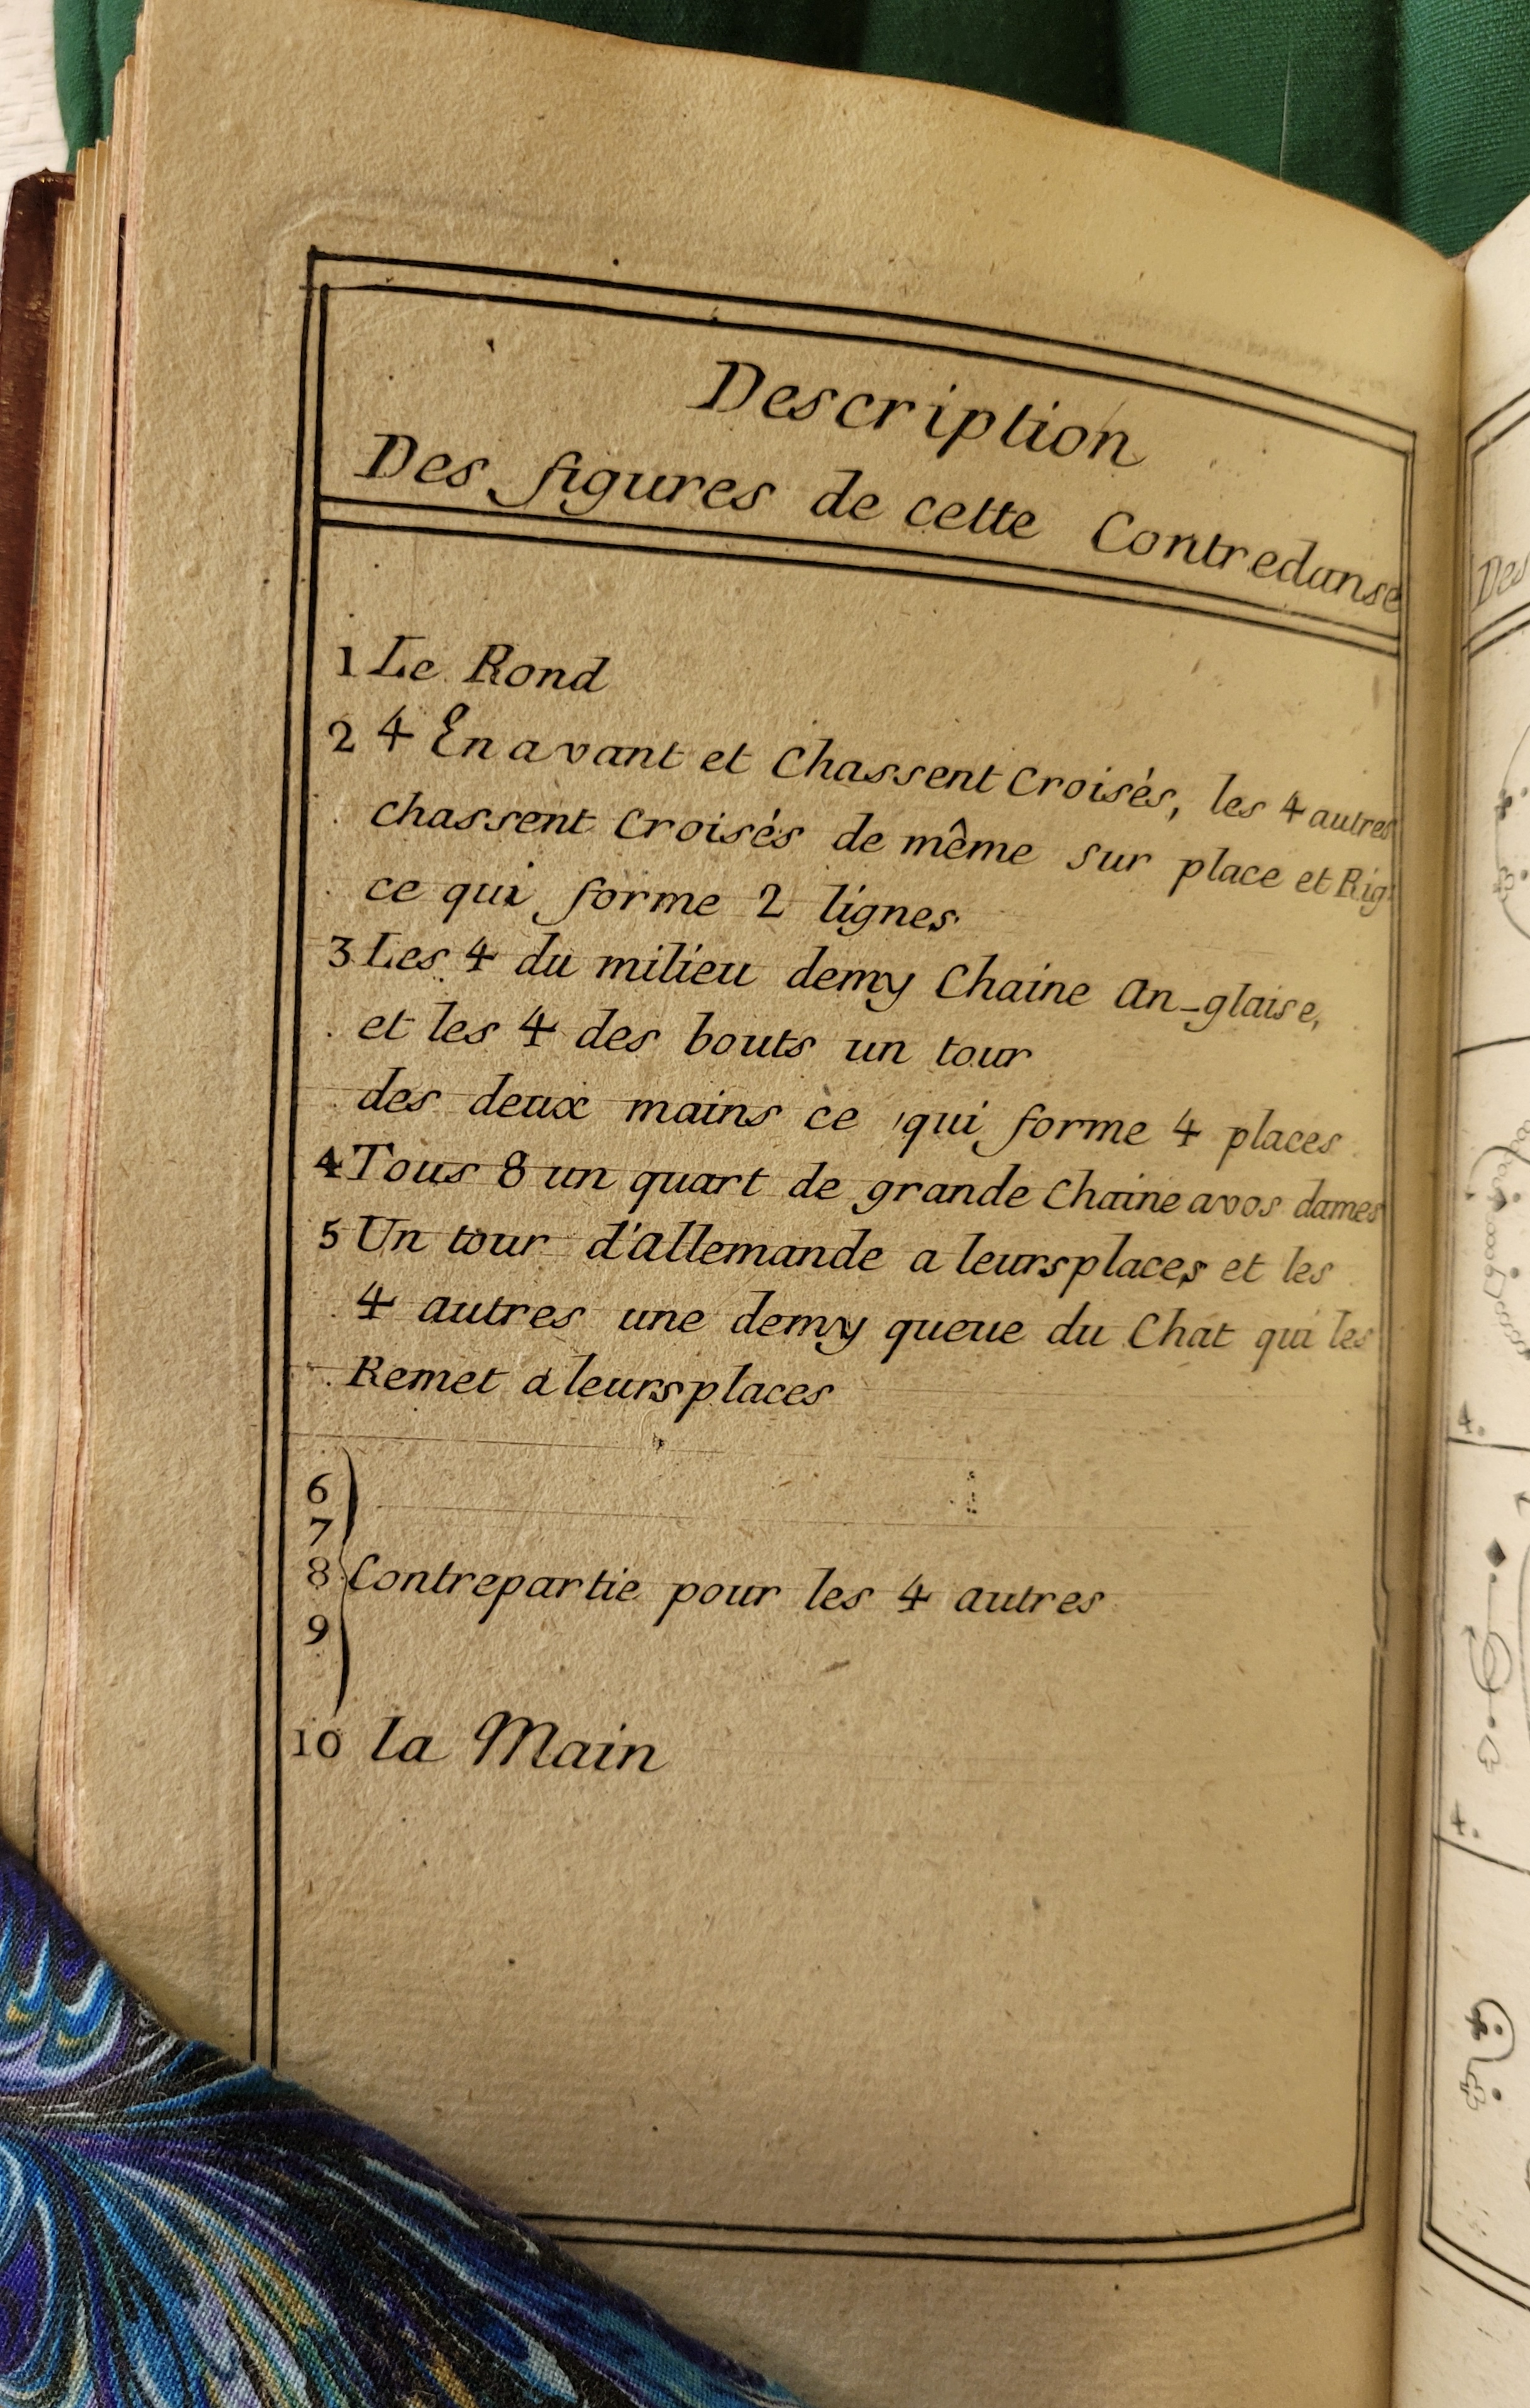 Description
Des figures de cette Contredanse
1 Le Rond
2 4 En avant et Chassent Croisés, les 4 autres
chassent Croisés de même sur place et Rig
ce qui forme 2 lignes
3 Les 4 du milieu demy Chaine An-glaise,
et les 4 des bouts un tour
des deux mains ce qui forme 4 places
4 Tous 8 un quart de grande Chaine avos dames
5 Un tour d'allemande a leurs places et les
4 autres une demy queue du Chat qui les
Remet a leurs places
6
7
8 Contrepartie pour les 4 autres
9
10 la Main
Des
4.
4.